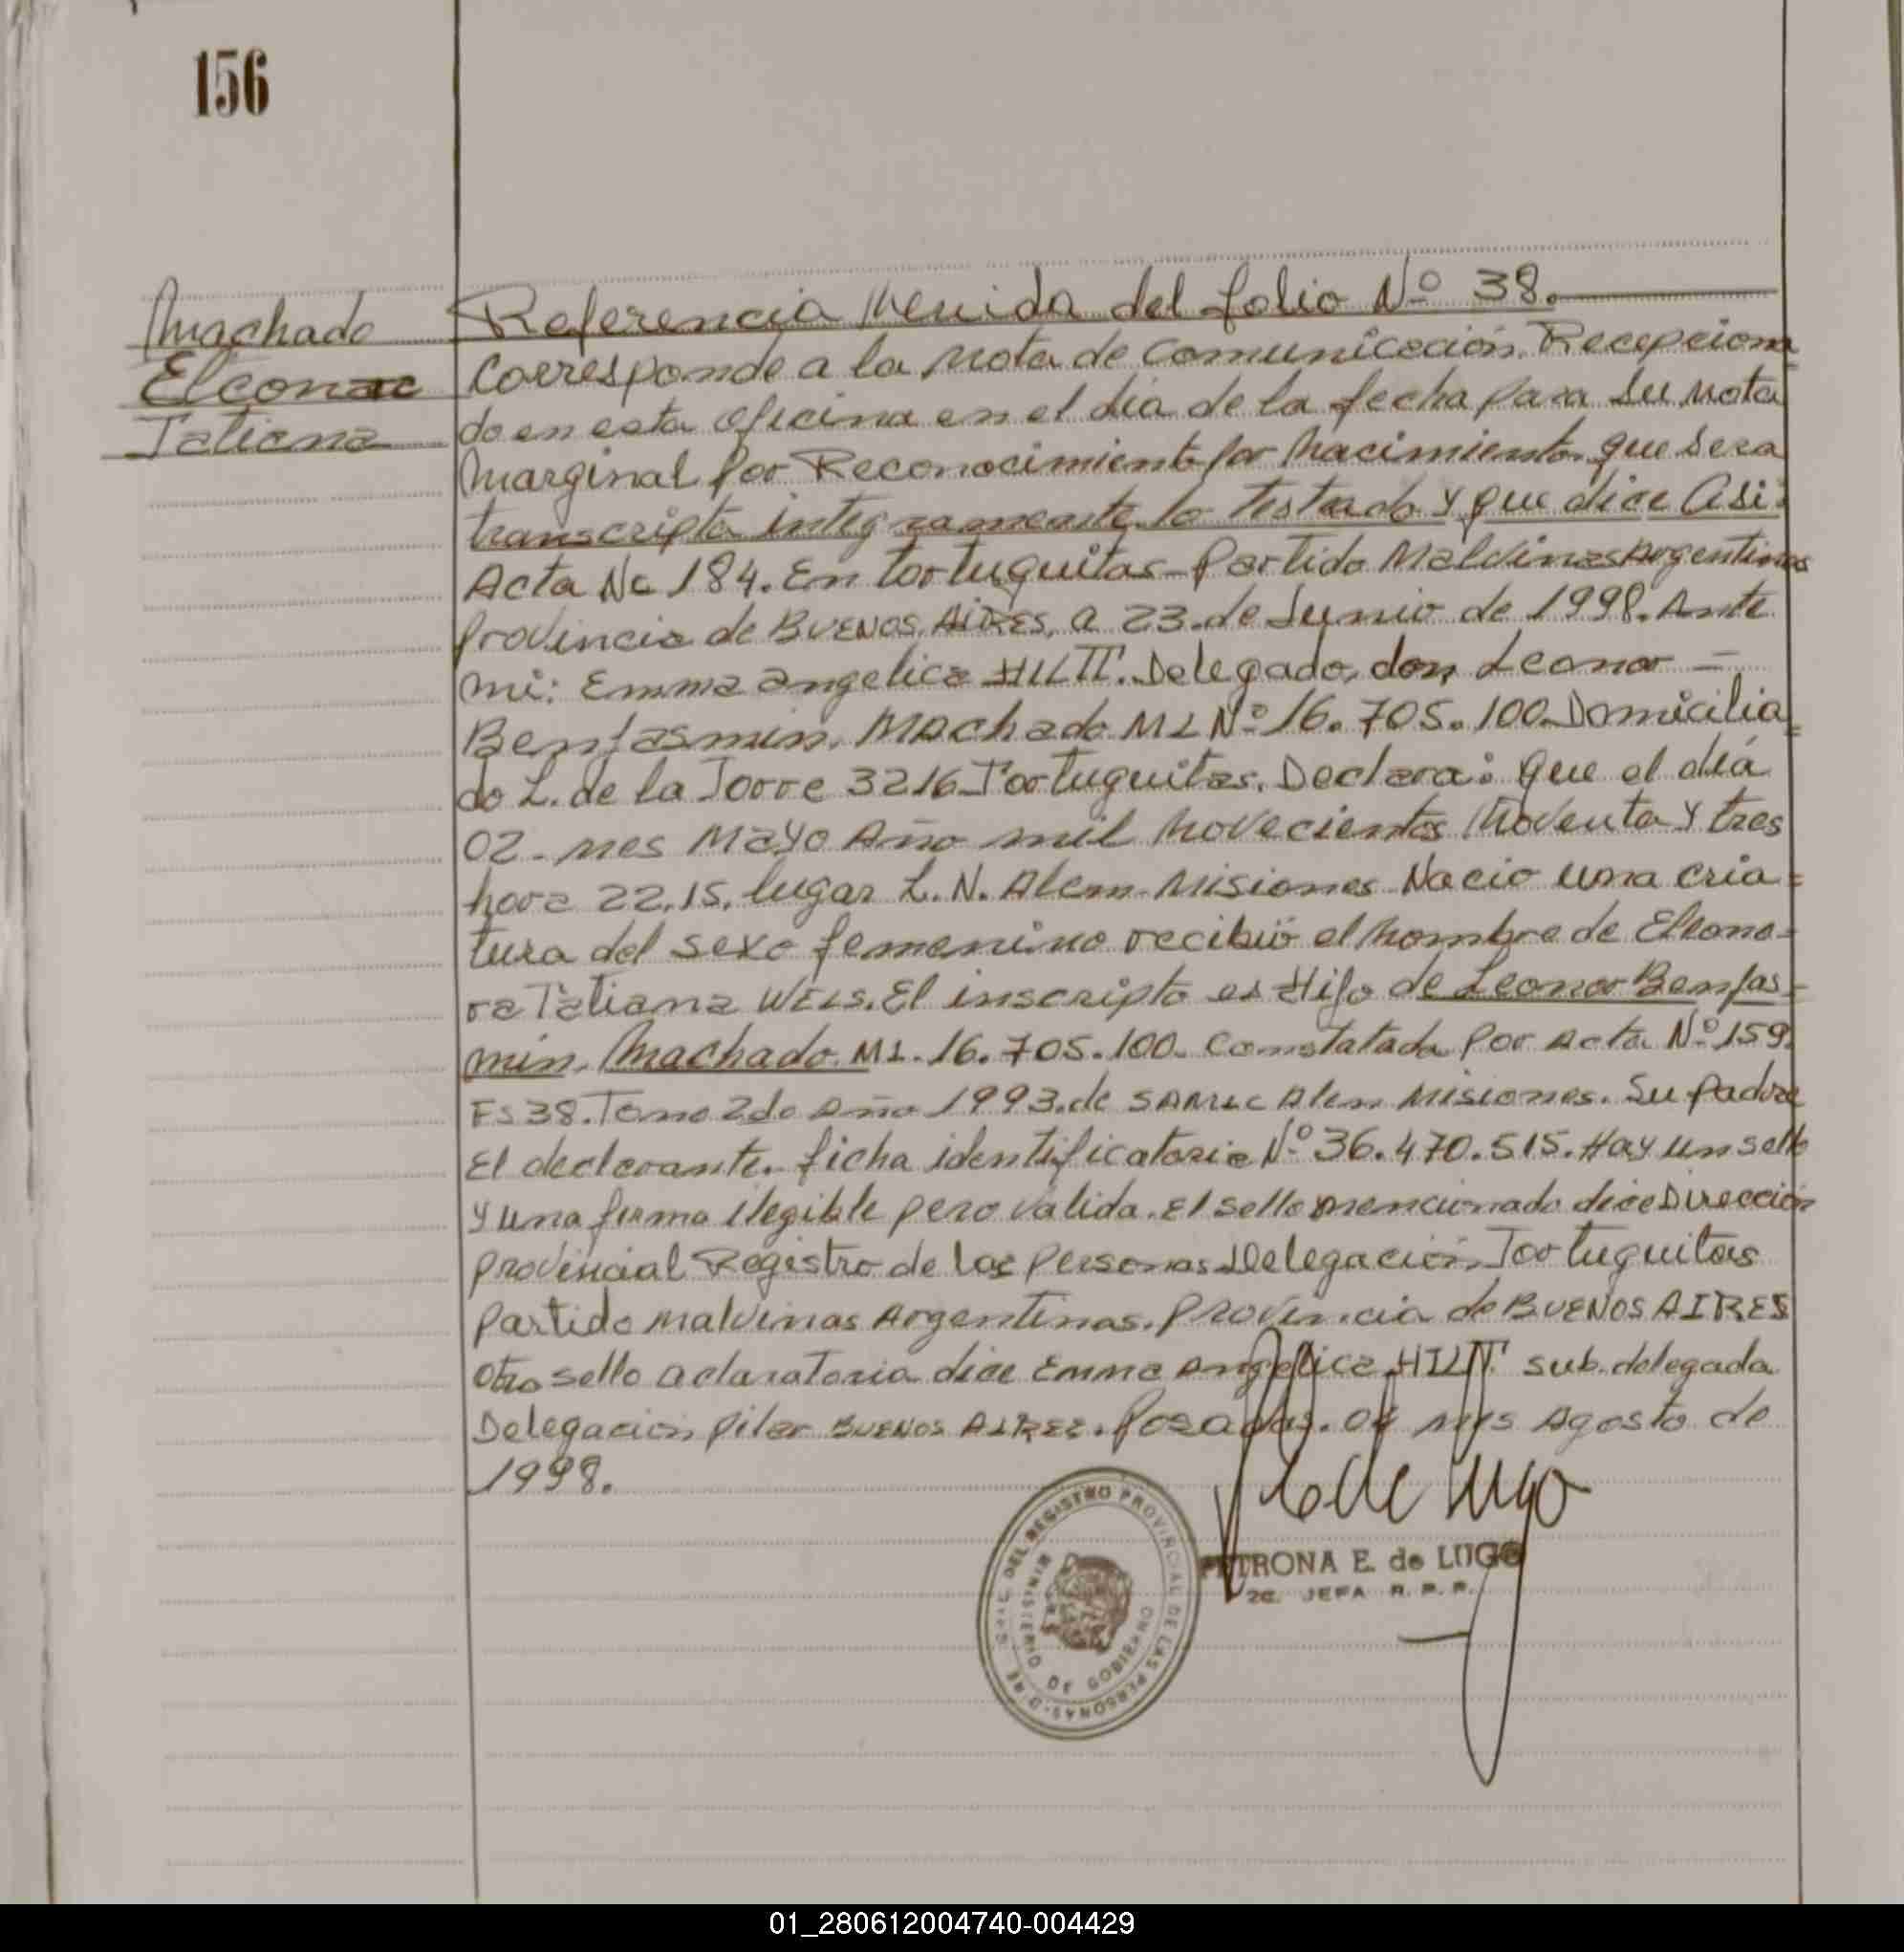 156
Machado
Eleonor
Tatiana
Referencia Venida del folio Nº 38.
Corresponde a la Nota de Comunicación, Recepciona=
do en esta Oficina en el día de la fecha para su nota
Marginal por Reconocimiento por Nacimiento que sera
transcripta integramente lo testado y que dice Asi:
Acta No 184. En Tortuguitas Partido Malvinas Argentinas
Provincia de BUENOS AIRES, a 23 de Junio de 1998. Ante
mi: Emma angelica HILTT. Delegado, don Leonor -
Benjasmin, Machado MI Nº 16.705.100 Domicilia=
do L. de la Torre 3216 Tortuguitas. Declara: que el día
02 - mes Mayo Año mil novecientos Noventa y tres
hora 22,15, lugar L. N. Alem-Misiones Nacio una cria=
tura del sexo femenino recibió el nombre de Eleono=
ra Tatiana WEIS. El inscripto es Hijo de Leonor Benjas=
min, Machado MI. 16.705.100. Constatada Por Acta Nº 159.
Fs 38. Tomo 2do Año 1993. de SAMIC Alem Misiones. Su Padre
El declarante. ficha identificatoria Nº 36.470.515. Hay un sello
y una firma ilegible pero valida. El sello mencionado dice Dirección
Provincial Registro de las Personas Delegación Tortuguitas
Partido Malvinas Argentinas. Provincia de BUENOS AIRES
Otro sello aclaratoria dice Emma Angelica HILTT sub. delegada
Delegacion Pilar BUENOS AIRES. Posadas. 04 mes Agosto de
1998.
DIRE GRAL DEL REGISTRO PROVINCIAL DE LAS PERSONAS
MINISTERIO DE GOBIERNO
PETRONA E. de LUGO
2a. JEFA R. P. P.
01_280612004740-004429